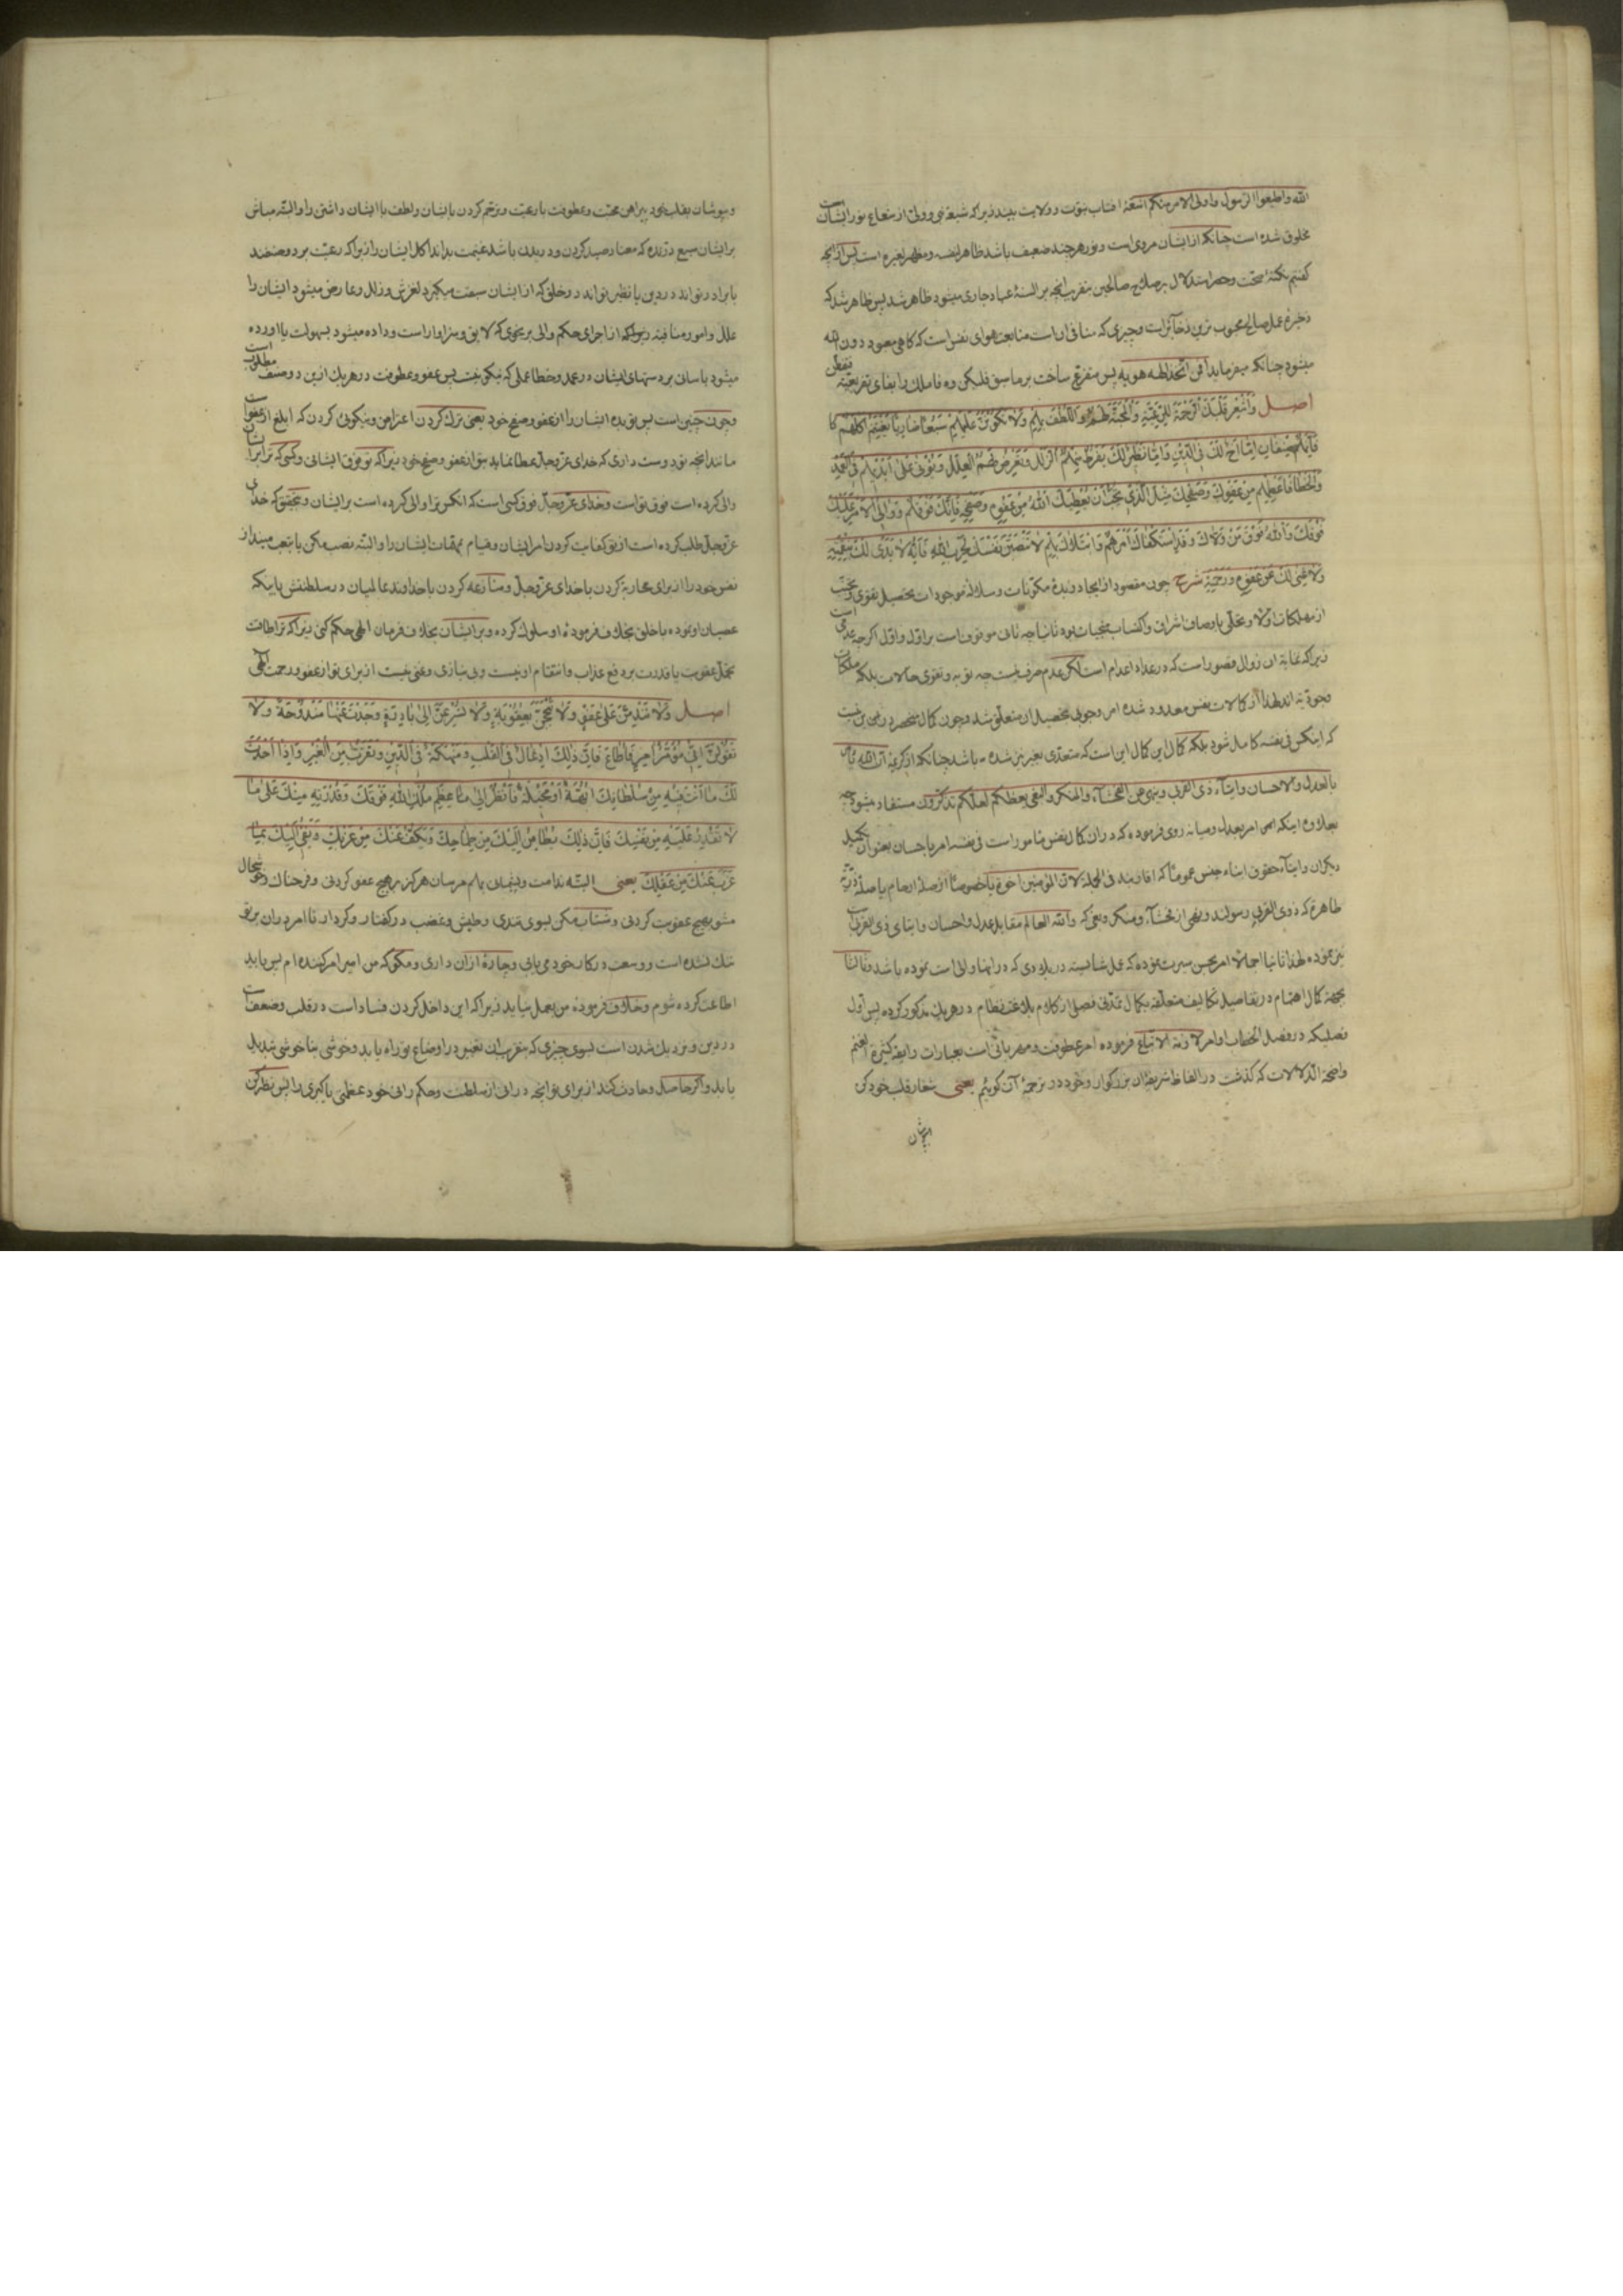 الله واطیعوا الرسول واولی الامر منکم اشعهٔ افتاب نبوّت و ولایت بیند زیرا که شیعهٔ نبی و ولی از شعاع نور ایشان
مخلوق شده است چنانکه از ایشان مروی است و نور هر چند ضعیف باشد ظاهر لنفسه و مظهر لغیره است پس از آنچه
کفتیم نکتهٔ صحّت و حصر استدلال بر صلاح صالحین بتقریب انچه بر السنهٔ عباد جاری میشود ظاهر شد پس ظاهر شد که
ذخیرهٔ عمل صالح محبوب ترین ذخآئر است و چیزی که منافی ان است متابعت هوای نفس است که کاهی معبود دون الله
میشود چنانکه میفرماید أفمن اتّخذ الهه هویه پس متفرّع ساخت بر ما سبق فلیکن
اصل وَأَشْعِرْ قَلْبَكَ الرَّحْمَةَ لِلرَّعِيَّةِ وَالْمَحَبَّةَ لَهُمْ وَاللُّطْفَ بِهِمْ وَلَا تَكُونَنَّ عَلَيْهِمْ سَبُعًا ضَارِيًا تَغْتَنِمُ أَكْلَهُمْ
فَإِنَّهُمْ صِنْفَانِ إِمَّا أَخٌ لَكَ فِي الدِّينِ وَإِمَّا نَظِيرٌ لَكَ يَفْرُطُ مِنْهُمُ الزَّلَلُ وَتَعْرِضُ لَهُمُ الْعِلَلُ وَيُؤْتَى عَلَى أَيْدِيهِمْ فِي الْعَمْدِ
وَالْخَطَإِ فَأَعْطِهِمْ مِنْ عَفْوِكَ وَصَفْحِكَ مِثْلَ الَّذِي تُحِبُّ أَنْ يُعْطِيَكَ اللهُ مِنْ عَفْوِهِ وَصَفْحِهِ فَإِنَّكَ فَوْقَهُمْ وَوَالِي الْأَمْرِ عَلَيْكَ
فَوْقَكَ وَاللهُ فَوْقَ مَنْ وَلَّاكَ وَقَدِ اسْتَكْفَاكَ أَمْرَهُمْ وَابْتَلَاكَ بِهِمْ لَا تَنْصِبَنَّ نَفْسَكَ لِحَرْبِ اللهِ فَإِنَّهُ لَا يَدَيْ لَكَ بِنِقْمَتِهِ
وَلَا غِنَى لَكَ عَنْ عَفْوِهِ وَرَحْمَتِهِ شرح چون مقصود از ایجاد مکوّنات و سلالهٔ موجودات تحصیل تقوی و تجنّب
از مهلکات اولا و تحلّی باوصاف اشراف و کتساب منجیات بود ثانیا چه ثانی موقوف است بر اوّل و اوّل اکرچه عدمی است
زیرا که بمثابهٔ ان زوال قصور است که در عداد اعدام است لکن عدم صرف نیست چه توبه و تقوی حالات بلکه ملکات
وجودیّه اند لهذا از کمالات نفس معدود شده امر وجوبی بتحصیل ان متعلّق شد و چون کمال منحصر در این نیست
که اینکس فی نفسه کامل شود بلکه کمال این کمال این است که متعدّی بغیر نیز شده باشد چنانکه از کریمهٔ ان الله یأمر
بالعدل والاحسان وایتآء ذی القربی وینهی عن الفحشآء والمنکر والبغی یعظکم لعلّکم تذکّرون مستفاد میشود چه
بعلاوه اینکه اس امر بعدل و میانه روی فرموده که در ان کمال نفس مأمور است فی نفسه امر باحسان بعنوان تکمیل
دیکران وایتآء حقوق ابناء جنس عموماً که اقاربند فی الجمله لانّ المؤمنین اخوة یا خصوصاً از صلهٔ ارحام یا صلهٔ ذرّیّه
طاهره که ذوی القربی رسولند و نهی از فحشآء و منکر و بغی که والله العالم مقابل عدل و احسان وایتای ذی القربی است
نیز نموده لهذا ثانیا اجمالاً امر بحسن سیرت نموده که عمل شایسته در بلادی که در انها والی است نموده باشد و ثالثا
بجهة کمال اهتمام در تفاصیل تکالیف متعلّقه بکمال تمدّنی فصلی از کلام بلاغت نظام در هر یک مذکور کرده پس اوّل
فصلیکه در فصل الخطاب اوامر لازمة الاتباع فرموده امر عطوفت و مهربانی است بعبارات رایقهٔ کثیرة المغنم
واضحة الدّلالات که کذشت در الفاظ شریفهٔ ان بزرکوار و خود در ترجمهٔ آن کوئیم یعنی شعار قلب خود کن
وبپوشان بقلب خود پیراهن محبّت و عطوفت با رعیّت و ترحّم کردن بایشان و لطف با ایشان داشتن را و البتّه مباش
بر ایشان سبع درّنده که معتاد صید کردن و دریدن باشد غنیمت بداند اکل ایشان را زیرا که رعیّت بر دو صنفند
یا برادر تواند در دین یا نظیر تواند در خلق که از ایشان سبقت میکیرد لغزش و زلل و عارض میشود ایشان را
علل و امور منافیهٔ از اجرای حکم والی بر نحوی که لایق و سزاوار است و داده میشود بسهولت یا اورده
میشود باسان بر دستهای ایشان در عمد و خطا عملی که نیکو نیست پس عفو و عطوفت در هر یک ازین دو صنف مطلوب است
و چون چنین است پس تو بده ایشان را از عفو و صفح خود یعنی ترک کردن اعتراض و نیکوئی کردن که ابلغ از عفو است
مانند انچه تو دوست داری که خدای عزّ وجلّ عطا نماید بتو از عفو و صفح خود زیرا که تو فوق ایشانی و کسی که ترا بر ایشان
والی کرده است فوق تو است و خدای عزّ وجلّ فوق کسی است که انکس ترا والی کرده است بر ایشان و بتحقیق که خدای
عزّ وجلّ طلب کرده است از تو کفایت کردن امر ایشان و قیام بمهمّات ایشان را و البتّه نصب مکن یا بتعب مینداز
نفس خود را از برای محاربه کردن با خدای عزّ وجلّ و منازعه کردن با خداوند عالمیان در سلطنتش باینکه
عصیان او نموده با خلق بخلاف فرمودهٔ او سلوک کرده و بر ایشان بخلاف فرمان الهی حکم کنی زیرا که ترا طاقت
تحمّل عقوبت یا قدرت بر دفع عذاب و انتقام او نیست و بی نیازی و غنی نیست از برای تو از عفو و رحمت الهی
اصل وَلَا تَنْدَمَنَّ عَلَى عَفْوٍ وَلَا تَبْجَحَنَّ بِعُقُوبَةٍ وَلَا تُسْرِعَنَّ إِلَى بَادِرَةٍ وَجَدْتَ عَنْهَا مَنْدُوحَةً وَلَا
تَقُولَنَّ إِنِّي مُؤَمَّرٌ آمُرُ فَأُطَاعُ فَإِنَّ ذَلِكَ إِدْغَالٌ فِي الْقَلْبِ وَمَنْهَكَةٌ فِي الدِّينِ وَتَقَرُّبٌ مِنَ الْغِيَرِ وَإِذَا أَحْدَثَ
لَكَ مَا أَنْتَ فِيهِ مِنْ سُلْطَانِكَ أُبَّهَةً أَوْ مَخِيلَةً فَانْظُرْ إِلَى عِظَمِ مُلْكِ اللهِ فَوْقَكَ وَقُدْرَتِهِ مِنْكَ عَلَى مَا
لَا تَقْدِرُ عَلَيْهِ مِنْ نَفْسِكَ فَإِنَّ ذَلِكَ يُطَامِنُ إِلَيْكَ مِنْ طِمَاحِكَ وَيَكُفُّ عَنْكَ مِنْ غَرْبِكَ وَيَفِيءُ إِلَيْكَ بِمَا
عَزَبَ عَنْكَ مِنْ عَقْلِكَ یعنی البتّه ندامت و پشیمانی بهم مرسان هرکز بر هیچ عفو کردنی و فرحناک و خوشحال
مشو بهیچ عقوبت کردنی و شتاب مکن بسوی تندی و طیش و غضب در کفتار و کردار تا امر در ان بر تو
تنک نشده است و وسعت در کار خود می یابی و چارهٔ ازان داری و مکو که من امیر امر کننده ام پس باید
اطاعت کرده شوم و خلاف فرمودهٔ من بعمل نیاید زیرا که این داخل کردن فساد است در قلب و ضعف است
در دین و نزدیک شدن است بسوی چیزی که بتقریب ان تغییر در اوضاع تو راه یابد و خوشی بناخوشی تبدیل
یابد و اکر حاصل و حادث کند از برای تو انچه در انی از سلطنت و حکم رانی خود عظمتی یا کبری را پس نظر کن